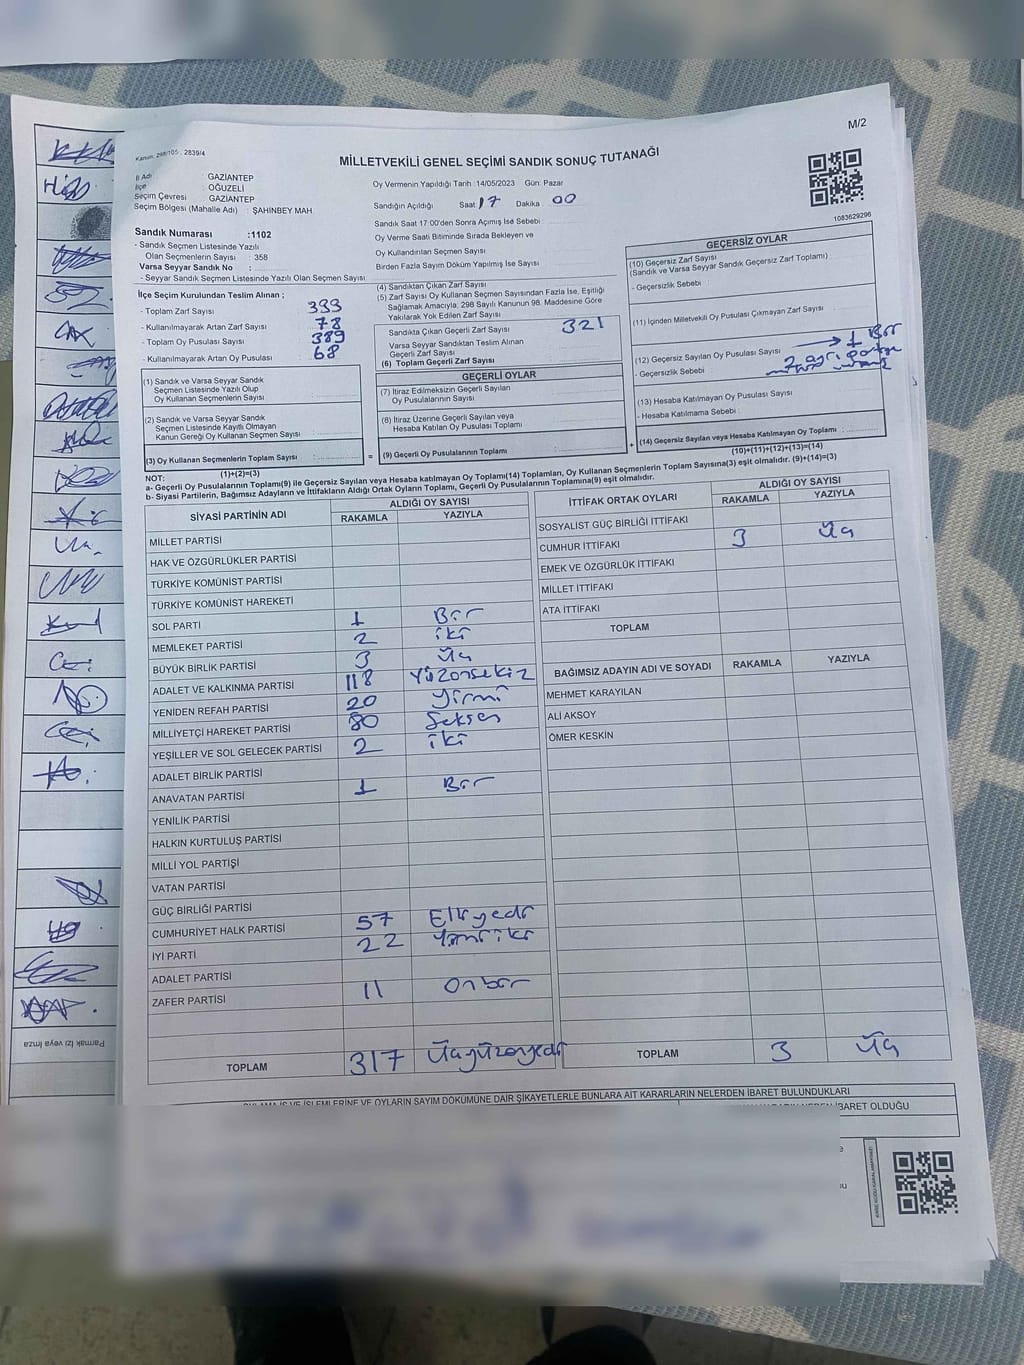 M/2
Kanun: 298/105 , 2839/4
MİLLETVEKİLİ GENEL SEÇİMİ SANDIK SONUÇ TUTANAĞI
İl Adı : GAZİANTEP
İlçe : OĞUZELİ
Seçim Çevresi : GAZİANTEP
Seçim Bölgesi (Mahalle Adı) : ŞAHİNBEY MAH
Oy Vermenin Yapıldığı Tarih : 14/05/2023 Gün: Pazar
Sandığın Açıldığı Saat: 17 Dakika: 00
Sandık Saat 17:00'den Sonra Açımış İse Sebebi :
Oy Verme Saati Bitiminde Sırada Bekleyen ve
Oy Kullandırılan Seçmen Sayısı
Birden Fazla Sayım Döküm Yapılmış İse Sayısı
1083629296
Sandık Numarası :1102
- Sandık Seçmen Listesinde Yazılı
Olan Seçmenlerin Sayısı : 358
Varsa Seyyar Sandık No :
- Seyyar Sandık Seçmen Listesinde Yazılı Olan Seçmen Sayısı
İlçe Seçim Kurulundan Teslim Alınan ;
- Toplam Zarf Sayısı 399
- Kullanılmayarak Artan Zarf Sayısı 78
- Toplam Oy Pusulası Sayısı 389
- Kullanılmayarak Artan Oy Pusulası 68
(1) Sandık ve Varsa Seyyar Sandık
Seçmen Listesinde Yazılı Olup
Oy Kullanan Seçmenlerin Sayısı
(2) Sandık ve Varsa Seyyar Sandık
Seçmen Listesinde Kayıtlı Olmayan
Kanun Gereği Oy Kullanan Seçmen Sayısı
(3) Oy Kullanan Seçmenlerin Toplam Sayısı
(1)+(2)=(3)
(4) Sandıktan Çıkan Zarf Sayısı
(5) Zarf Sayısı Oy Kullanan Seçmen Sayısından Fazla İse, Eşitliği
Sağlamak Amacıyla; 298 Sayılı Kanunun 98. Maddesine Göre
Yakılarak Yok Edilen Zarf Sayısı
Sandıkta Çıkan Geçerli Zarf Sayısı 321
Varsa Seyyar Sandıktan Teslim Alınan
Geçerli Zarf Sayısı
(6) Toplam Geçerli Zarf Sayısı
GEÇERLİ OYLAR
(7) İtiraz Edilmeksizin Geçerli Sayılan
Oy Pusulalarının Sayısı
(8) İtiraz Üzerine Geçerli Sayılan veya
Hesaba Katılan Oy Pusulası Toplamı
= (9) Geçerli Oy Pusulalarının Toplamı
GEÇERSİZ OYLAR
(10) Geçersiz Zarf Sayısı
(Sandık ve Varsa Seyyar Sandık Geçersiz Zarf Toplamı)
- Geçersizlik Sebebi
(11) İçinden Milletvekili Oy Pusulası Çıkmayan Zarf Sayısı
(12) Geçersiz Sayılan Oy Pusulası Sayısı 1 Bir
- Geçersizlik Sebebi 2 ayrı partiye
(13) Hesaba Katılmayan Oy Pusulası Sayısı
- Hesaba Katılmama Sebebi :
+ (14) Geçersiz Sayılan veya Hesaba Katılmayan Oy Toplamı
(10)+(11)+(12)+(13)=(14)
NOT:
a- Geçerli Oy Pusulalarının Toplamı(9) ile Geçersiz Sayılan veya Hesaba katılmayan Oy Toplam(14) Toplamları, Oy Kullanan Seçmenlerin Toplam Sayısına(3) eşit olmalıdır. (9)+(14)=(3)
b- Siyasi Partilerin, Bağımsız Adayların ve İttifakların Aldığı Ortak Oyların Toplamı, Geçerli Oy Pusulalarının Toplamına(9) eşit olmalıdır.
SİYASİ PARTİNİN ADI ALDIĞI OY SAYISI
RAKAMLA YAZIYLA
MİLLET PARTİSİ
HAK VE ÖZGÜRLÜKLER PARTİSİ
TÜRKİYE KOMÜNİST PARTİSİ
TÜRKİYE KOMÜNİST HAREKETİ
SOL PARTİ 1 Bir
MEMLEKET PARTİSİ 2 iki
BÜYÜK BİRLİK PARTİSİ 3 Üç
ADALET VE KALKINMA PARTİSİ 118 Yüzonsekiz
YENİDEN REFAH PARTİSİ 20 yirmi
MİLLİYETÇİ HAREKET PARTİSİ 80 Seksen
YEŞİLLER VE SOL GELECEK PARTİSİ 2 iki
ADALET BİRLİK PARTİSİ
ANAVATAN PARTİSİ 1 Bir
YENİLİK PARTİSİ
HALKIN KURTULUŞ PARTİSİ
MİLLİ YOL PARTİSİ
VATAN PARTİSİ
GÜÇ BİRLİĞİ PARTİSİ
CUMHURİYET HALK PARTİSİ 57 Elliyedi
İYİ PARTİ 22 Yirmiiki
ADALET PARTİSİ
ZAFER PARTİSİ 11 onbir
TOPLAM 317 Üçyüzonyedi
İTTİFAK ORTAK OYLARI ALDIĞI OY SAYISI
RAKAMLA YAZIYLA
SOSYALİST GÜÇ BİRLİĞİ İTTİFAKI
CUMHUR İTTİFAKI 3 Üç
EMEK VE ÖZGÜRLÜK İTTİFAKI
MİLLET İTTİFAKI
ATA İTTİFAKI
TOPLAM
BAĞIMSIZ ADAYIN ADI VE SOYADI RAKAMLA YAZIYLA
MEHMET KARAYILAN
ALİ AKSOY
ÖMER KESKİN
TOPLAM 3 Üç
Parmak İzi veya İmza
İŞ VE İŞLEMLERİNE VE OYLARIN SAYIM DÖKÜMÜNE DAİR ŞİKAYETLERLE BUNLARA AİT KARARLARIN NELERDEN İBARET BULUNDUKLARI
İBARET OLDUĞU